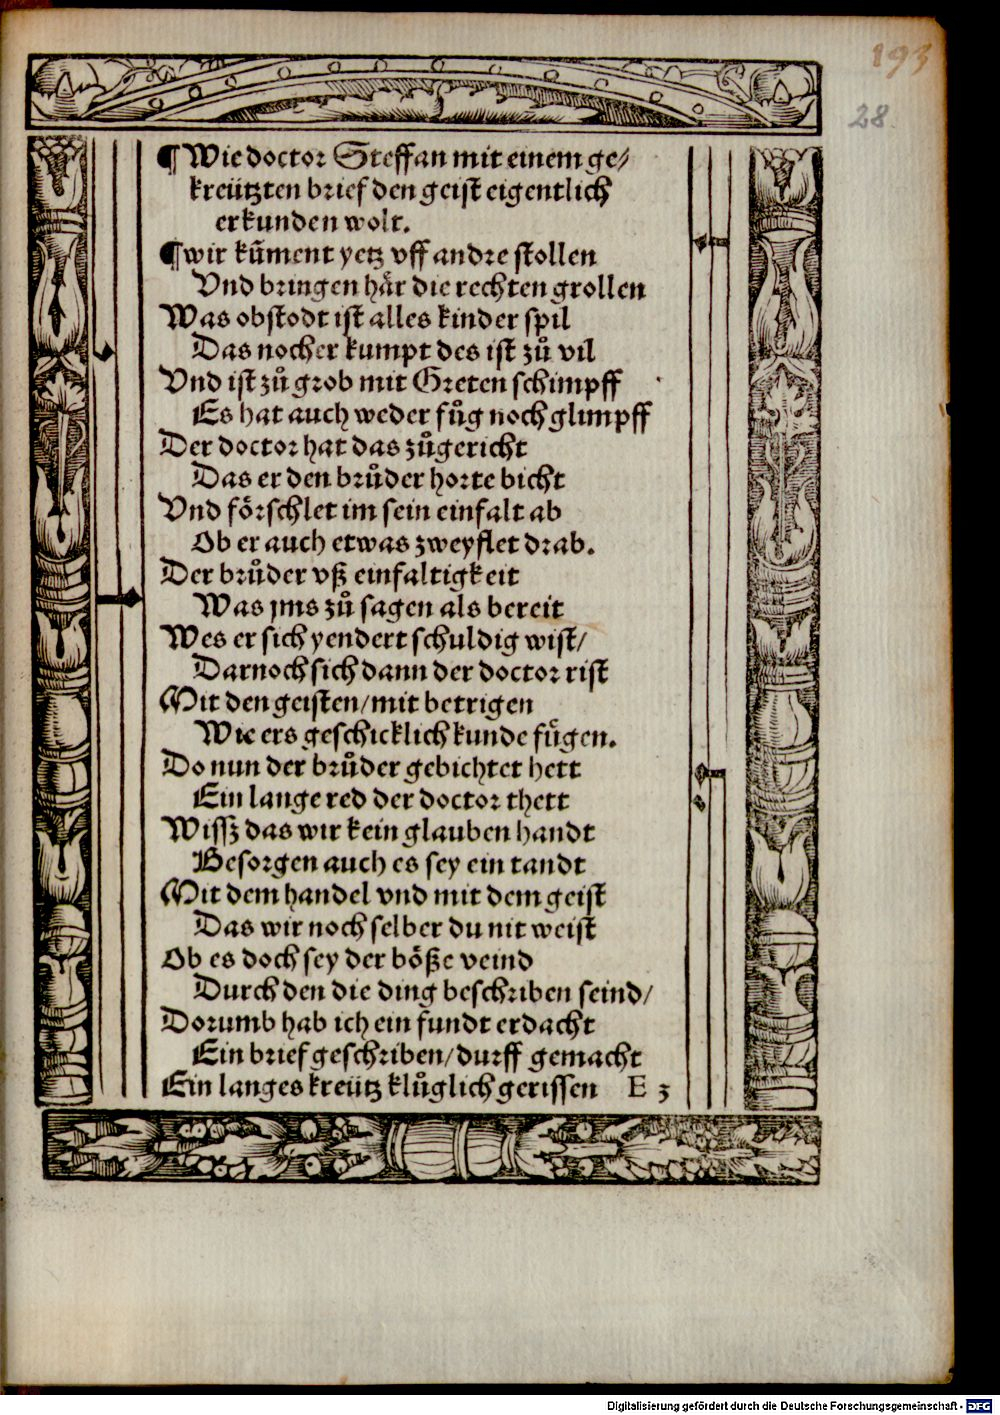 193
28
¶ Wie doctor Steffan mit einem ge/
kreützten brief den geist eigentlich
erkunden wolt.
¶ wir kũment yetz vff andre stollen
Vnd bringen här die rechten grollen
Was obstodt ist alles kinder spil
Das nocher kumpt des ist zů vil
Vnd ist zů grob mit Greten schimpff
Es hat auch weder fůg noch glimpff
Der doctor hat das zůgericht
Das er den brůder horte bicht
Vnd förschlet im sein einfalt ab
Ob er auch etwas zweyflet drab.
Der brůder vß einfaltigkeit
Was jms zů sagen als bereit
Wes er sich yendert schuldig wist/
Darnoch sich dann der doctor rist
Mit den geisten/mit betrigen
Wie ers geschicklich kunde fůgen.
Do nun der brůder gebichtet hett
Ein lange red der doctor thett
Wissz das wir kein glauben handt
Besorgen auch es sey ein tandt
Mit dem handel vnd mit dem geist
Das wir noch selber du nit weist
Ob es doch sey der böße veind
Durch den die ding beschriben seind/
Dorumb hab ich ein fundt erdacht
Ein brief geschriben/durff gemacht
Ein langes kreütz klůglich gerissen E 3
Digitalisierung gefördert durch die Deutsche Forschungsgemeinschaft - DFG